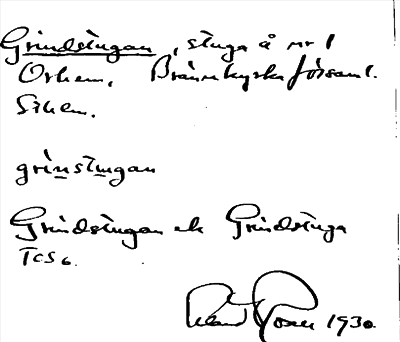 Grindstugan, stuga å nr 1
Örhem, Brännkyrka församl.
Sthlm.
grinstugan
Grindstugan el. Grindstuga
TCS 6.
1930.